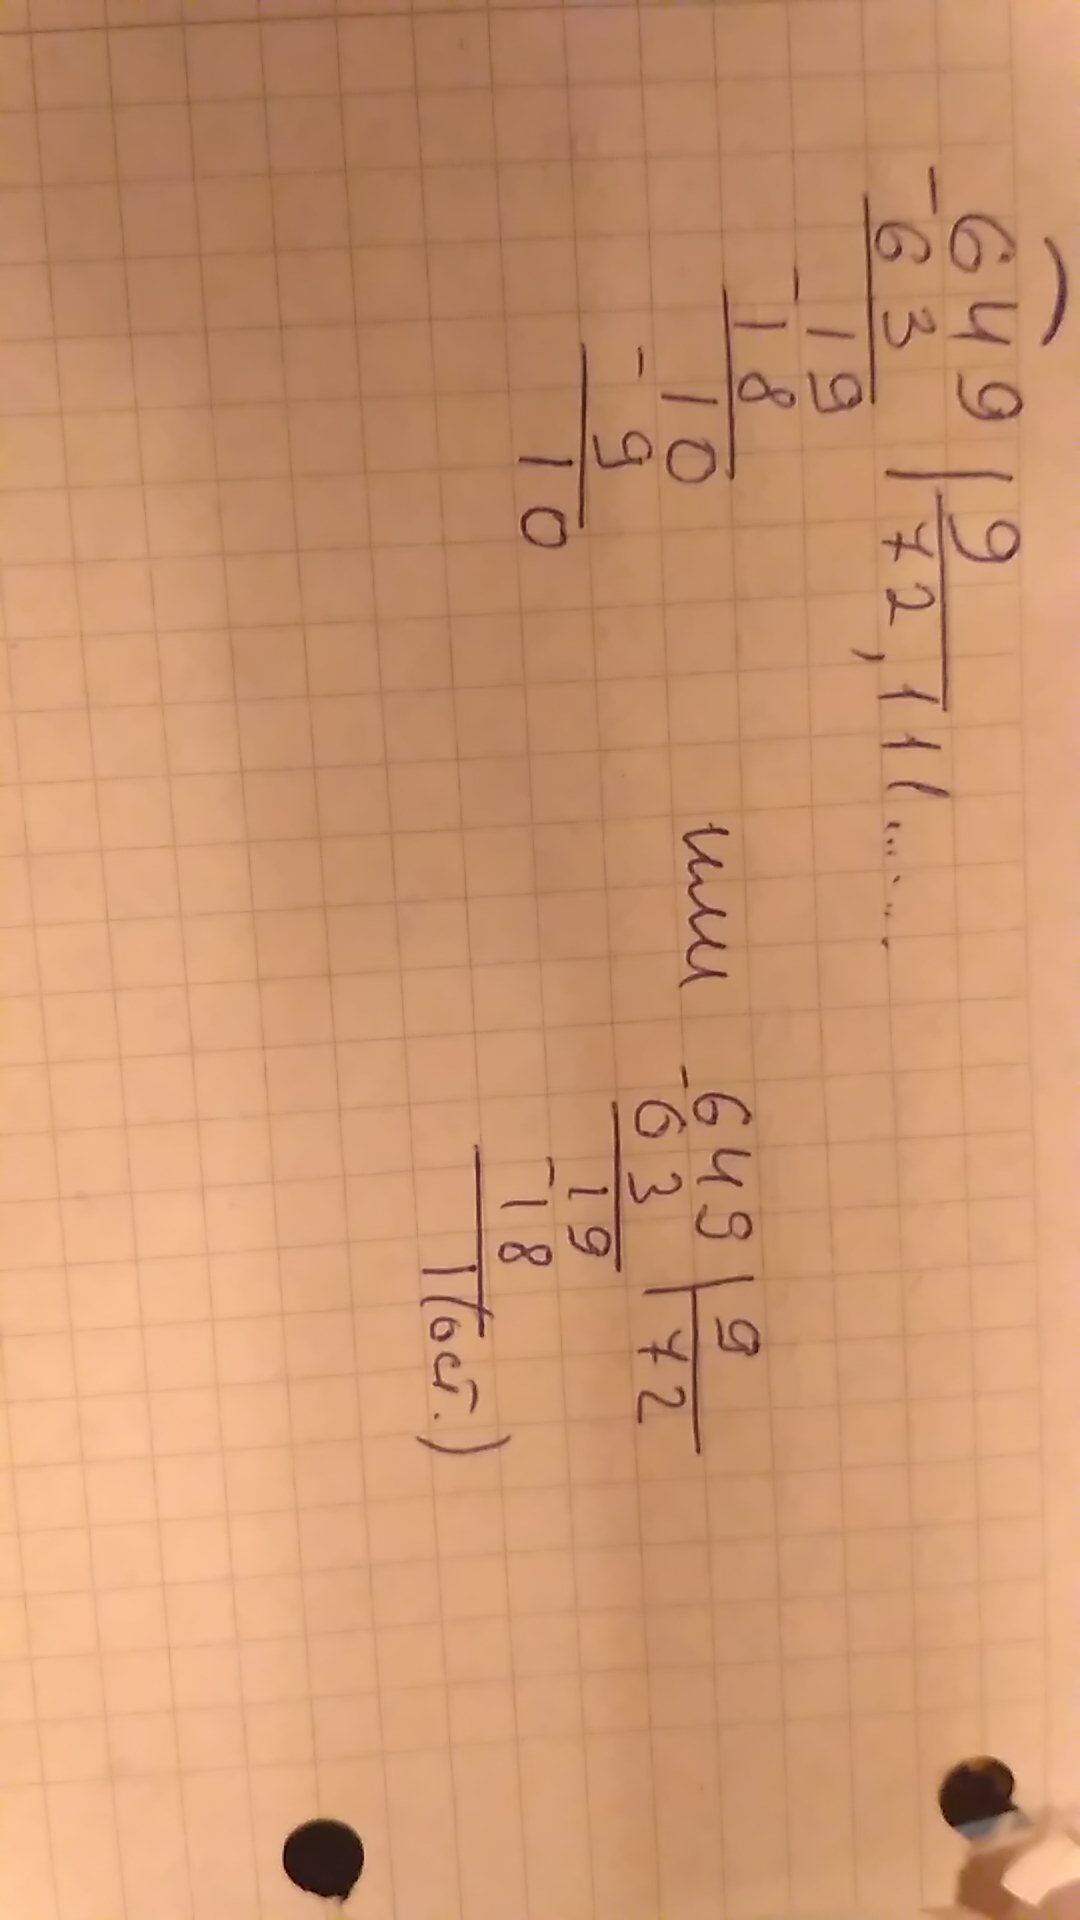 -649|9
63 72,111......
-19
18
-10
9
10
или
-649|9
63 72
19
-18
1(ост.)